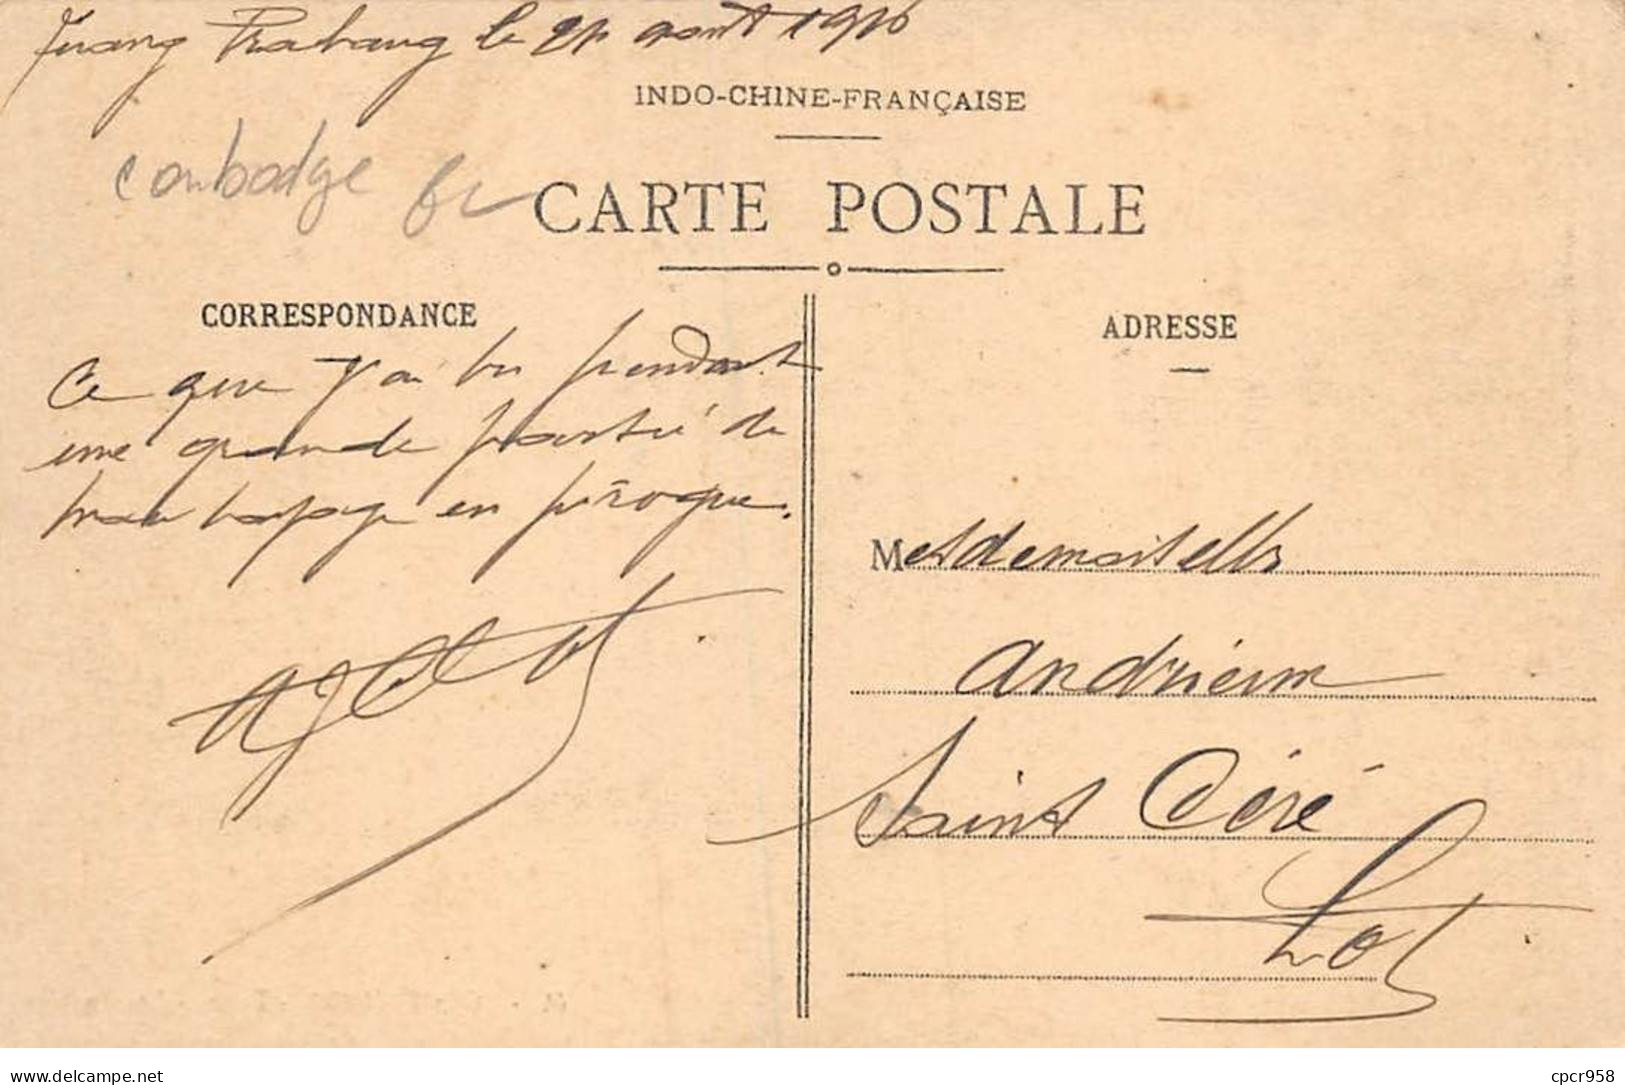 Prabang le 21 août 1916
INDO-CHINE-FRANÇAISE
Cambodge
CARTE POSTALE
CORRESPONDANCE
ADRESSE
Ce que j'ai vu pendant
une grande partie de
mon voyage en pirogue.
Mesdemoiselles
Andrieux
Saint Céré
Lot
www.delcampe.net
cpcr958